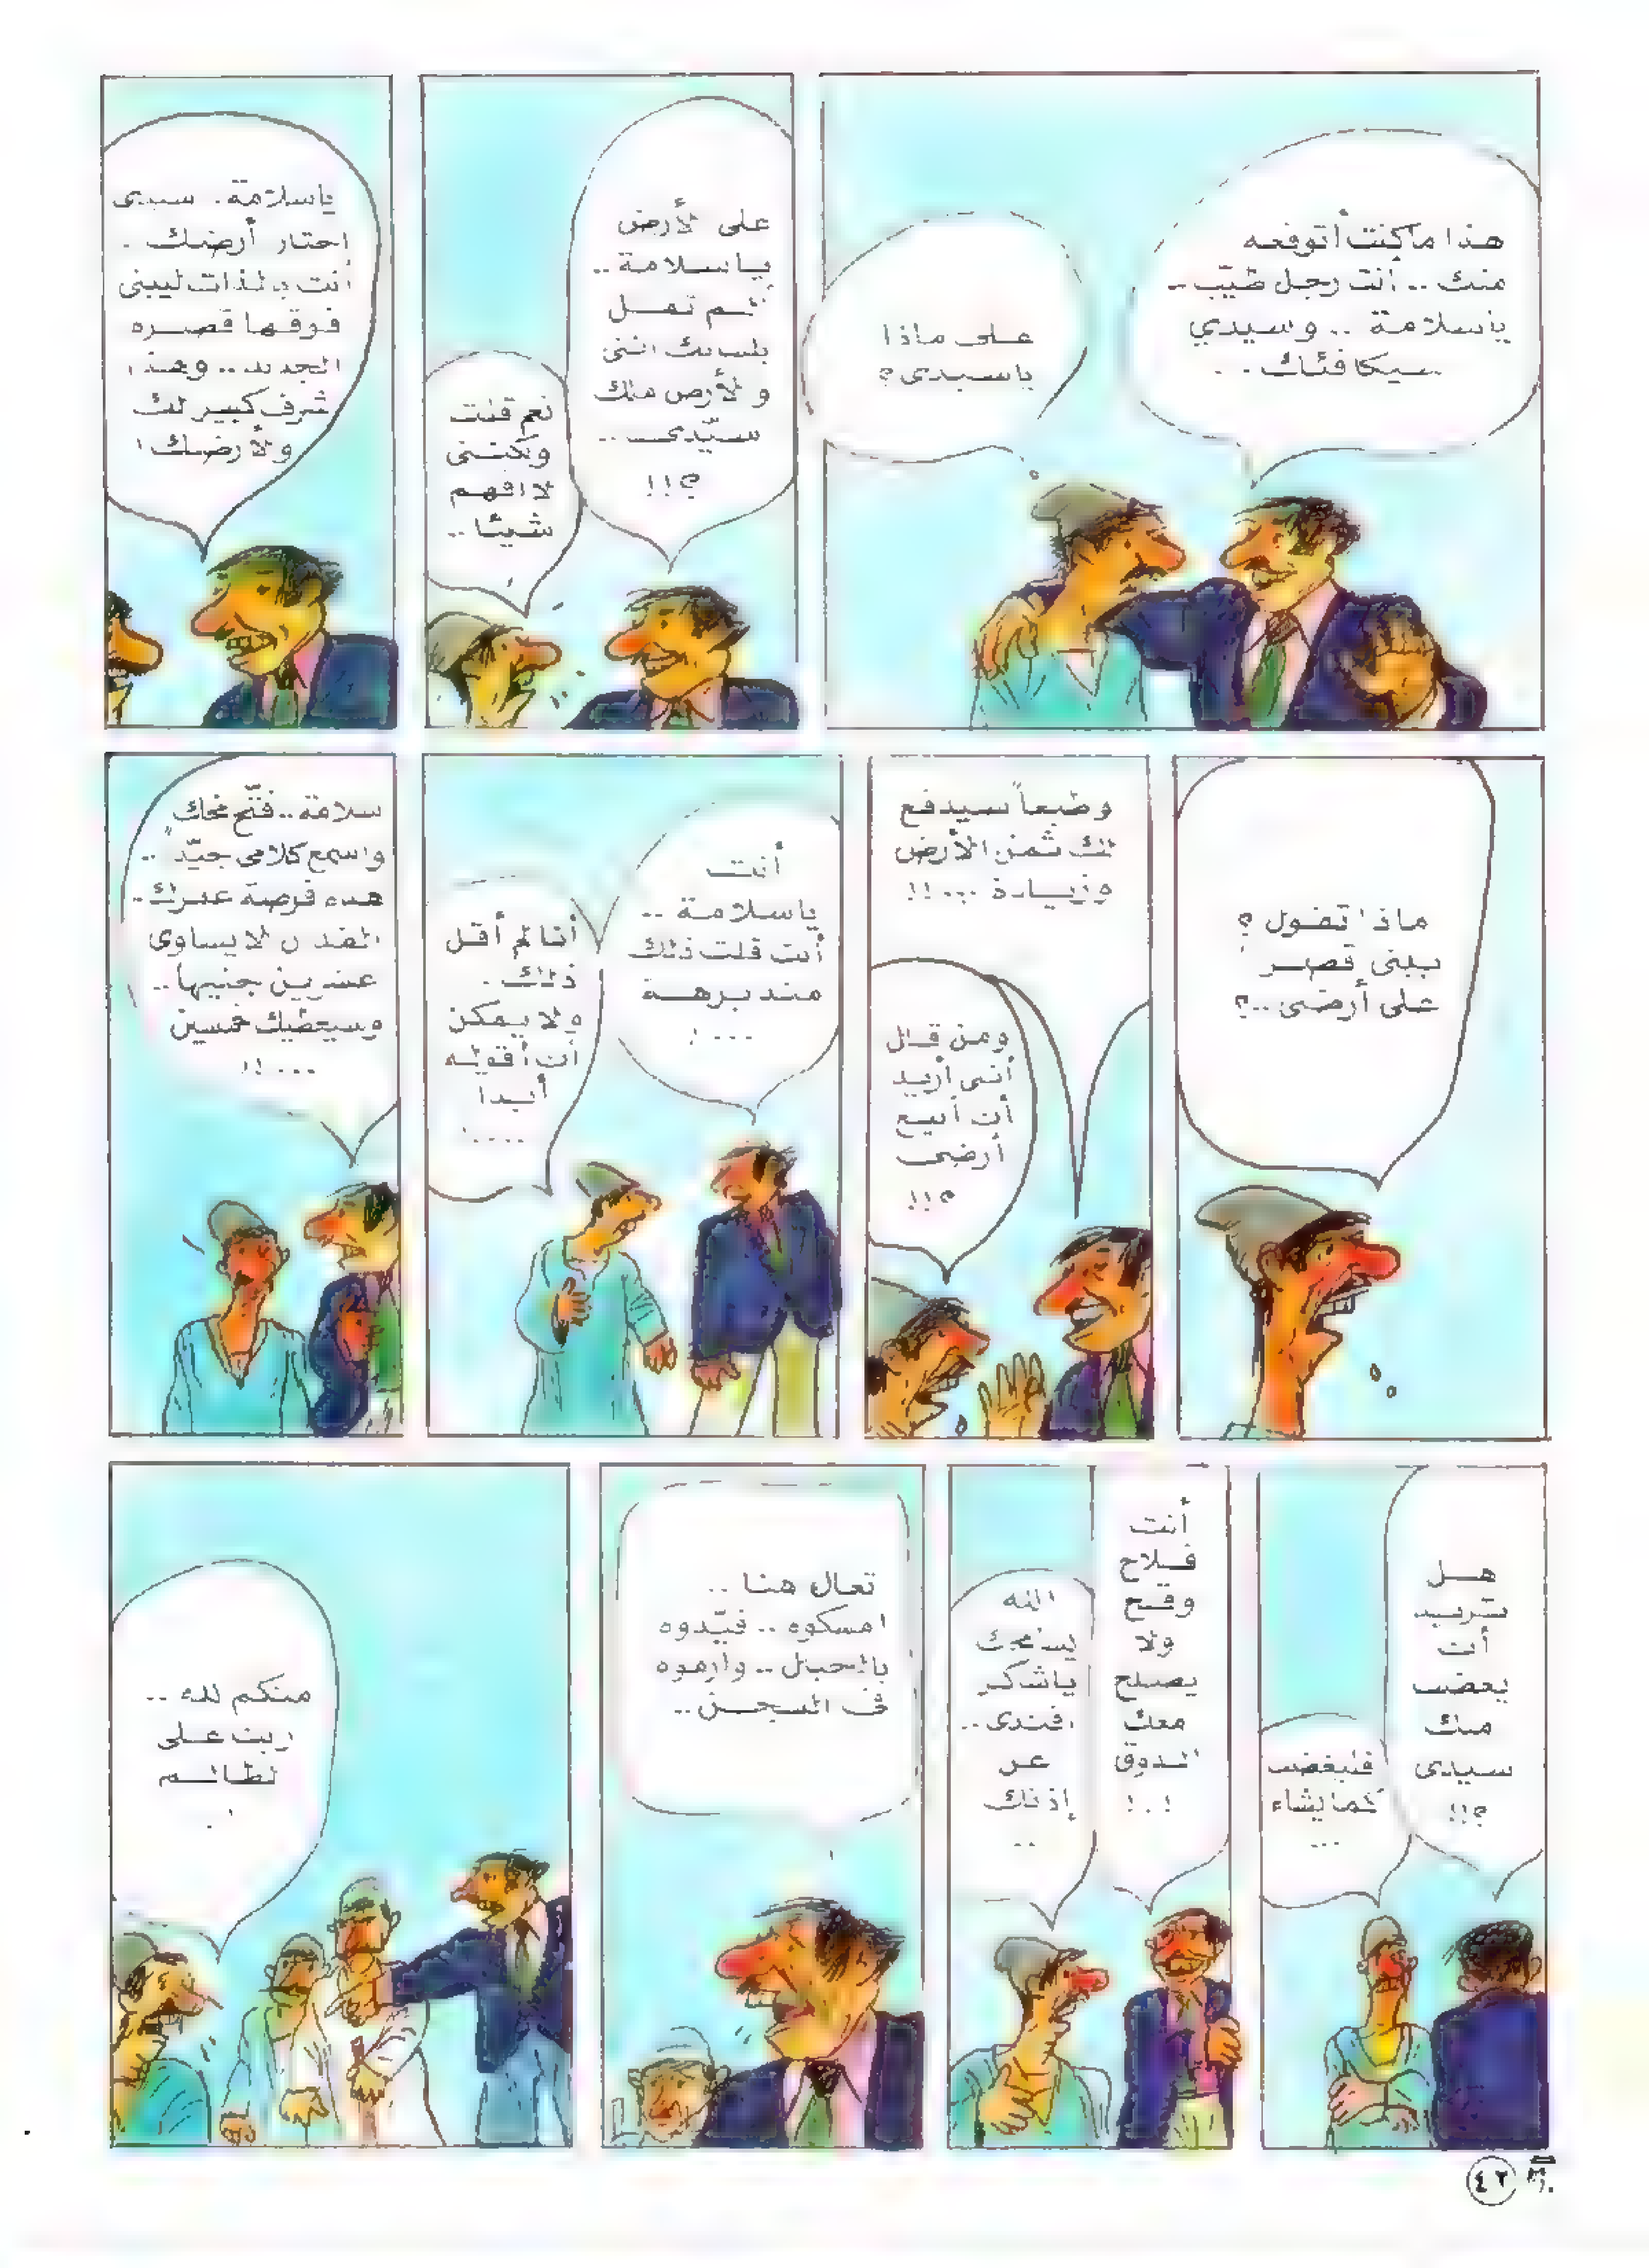 هذا ما كنت أتوقعه
منك .. أنت رجل طيّب ..
ياسلامة .. وسيدي
سيكافئك . .
على ماذا
ياسيدى ؟
على الأرض
ياسلامة ..
ألم تقل
بلسانك اننى
والأرض ملك
سيّدى ..
؟!!
نعم قلت
ولكننى
لا افهم
شيئا ..
ياسلامة . سيدى
اختار أرضك .
أنت بالذات ليبنى
فوقها قصره
الجديد .. وهذا
شرف كبير لك
ولأرضك !
ماذا تقول ؟
يبنى قصرا
على أرضى ..؟
وطبعاً سيدفع
لك ثمن الأرض
وزيادة ...!!
ومن قال
أننى أريد
أن أبيع
أرضى
؟!!
أنت
ياسلامة ..
أنت قلت ذلك
منذ برهة
...!
أنا لم أقل
ذلك .
ولا يمكن
أن أقوله
أبدا
....!
سلامة .. فتّح مخك
واسمع كلامى جيّداً ..
هذه فرصة عمرك .
الفدان لا يساوى
عشرين جنيها ..
وسيعطيك خمسين
...!!
هل
تريد
أن
يغضب
منك
سيدى
؟!!
فليغضب
كما يشاء
...
أنت
فلاح
وقح
ولا
يصلح
معك
الذوق
!.!
الله
يسامحك
ياشاكر
افندى ..
عن
إذنك
..
تعال هنا ..
امسكوه .. قيّدوه
بالحبال .. وارموه
فى السجن ..
منكم لله ..
ربنا على
الظالم
!
٤٢